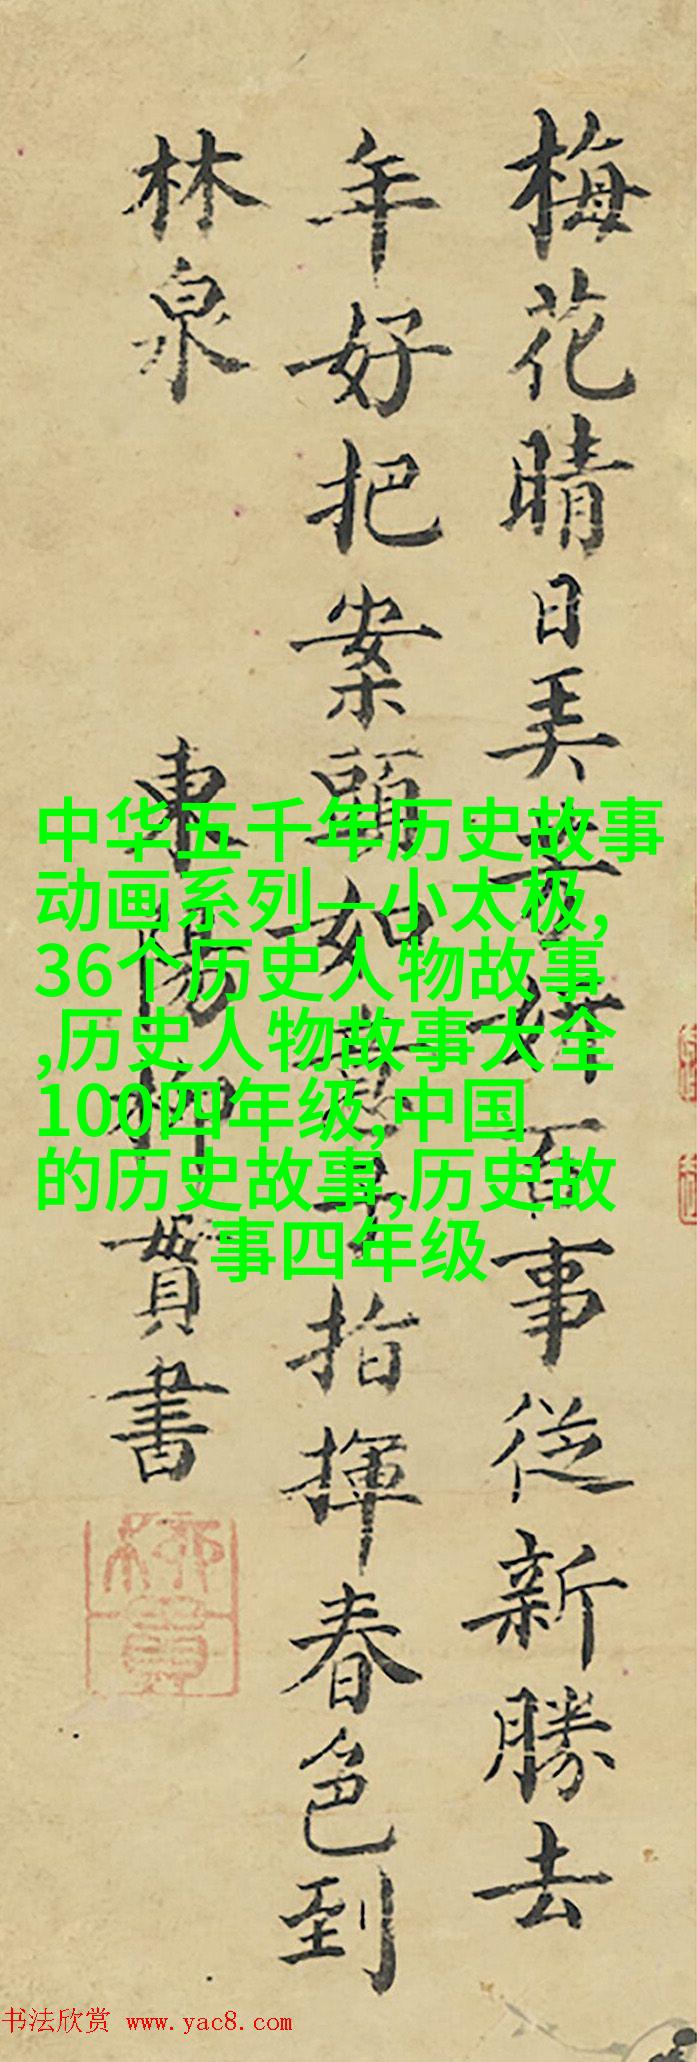 梅花晴日美百事從新勝去
年好把案頭如意指揮春色到
林泉
東陽柳貫書
柳貫
中华五千年历史故事
动画系列—小太极,
36个历史人物故事
,历史人物故事大全
100四年级,中国
的历史故事,历史故
事四年级
书法欣赏 www.yac8.com